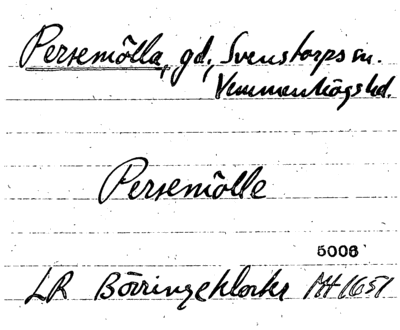 Persemölla, gd, Svenstorps sn.
Vemmenhögs hd.
Persemölle
5006
LR Börringekloster MH 1651